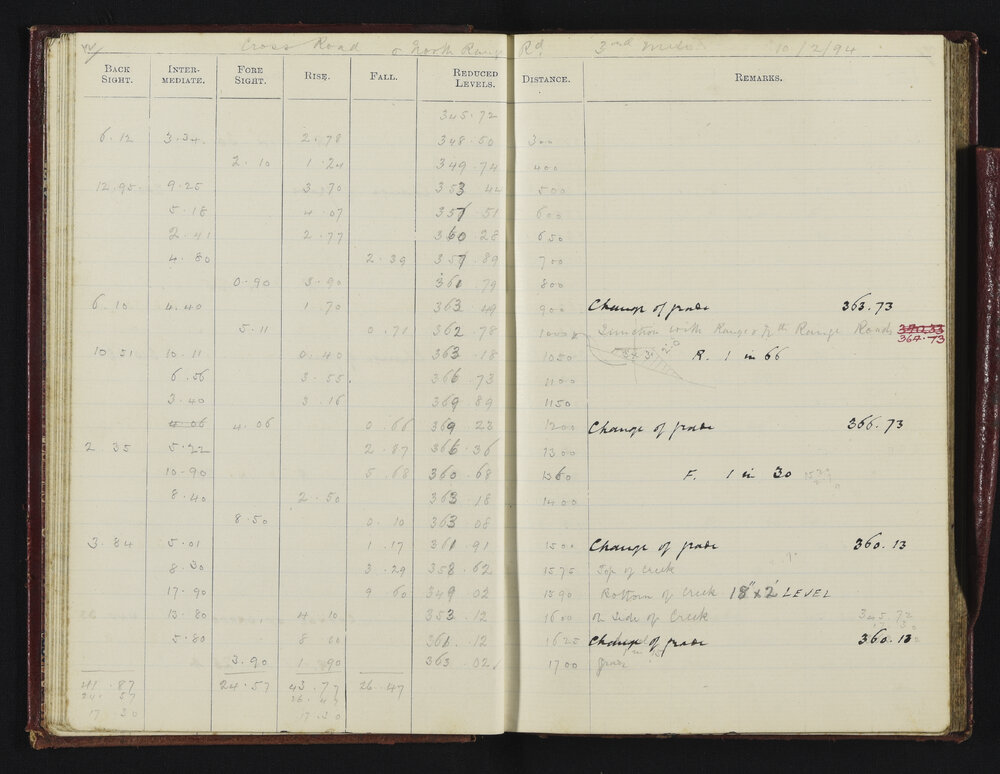 Cross Road North Range Rd. 3rd Mile 10/2/94
BACK SIGHT. INTER-MEDIATE. FORE SIGHT. RISE. FALL. REDUCED LEVELS. DISTANCE. REMARKS.
345.72
6.12 3.34 2.78 348.50 300
2.10 1.24 349.74 400
12.95 9.25 3.70 353.44 500
5.18 4.07 357.51 600
2.41 2.77 360.28 650
4.80 2.39 357.89 700
0.90 3.90 361.79 800
6.10 4.40 1.70 363.49 900 Change of grade 363.73
5.11 0.71 362.78 1000 Junction with Range & Nth Range Roads 364.73
10.51 10.11 0.40 363.18 1050 R. 1 in 66
6.56 3.55 366.73 1100
3.40 3.16 369.89 1150
4.06 4.06 0.66 369.23 1200 Change of grade 366.73
2.35 5.22 2.87 366.36 1300
10.90 5.68 360.68 1360 F. 1 in 30
8.40 2.50 363.18 1400
8.50 0.10 363.08
3.84 5.01 1.17 361.91 1500 Change of grade 360.13
8.30 3.29 358.62 1575 Top of Creek
17.90 9.60 349.02 1590 Bottom of Creek 18" x 2' LEVEL
13.80 4.10 353.12 1600 Side of Creek 345.72
5.80 8.00 361.12 1625 Change of grade 360.13
3.90 1.90 363.02 1700
41.87 24.57 43.77 26.47
24.57 26.47
17.30 17.30